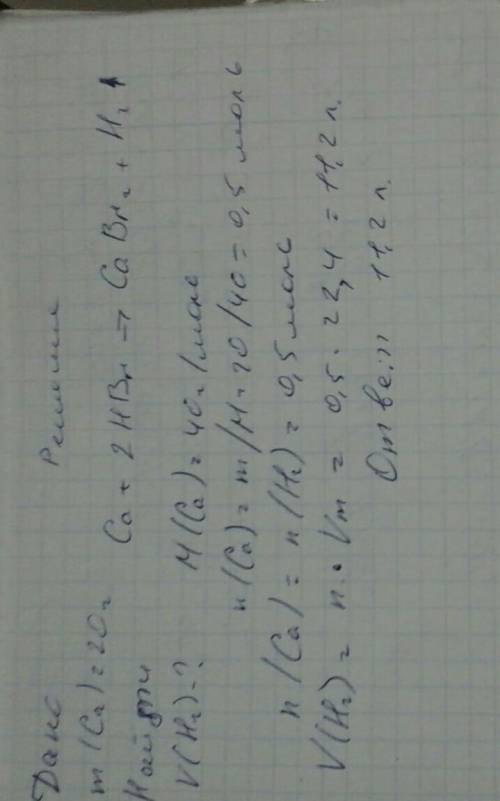 Дано Решение
m(Ca)=20г Ca + 2HBr → CaBr₂ + H₂↑
Найти
V(H₂)-? M(Ca)=40г/моль
n(Ca)=m/M=20/40=0,5 моль
n(Ca)=n(H₂)=0,5 моль
V(H₂)=n·Vm=0,5·22,4=11,2 л.
Ответ 11,2 л.